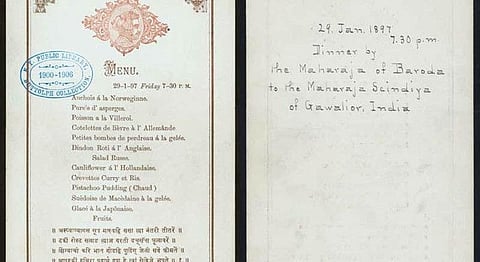 N.Y. PUBLIC LIBRARY,
1900-1906
BUTTOLPH COLLECTION.
MENU.
29-1-97 Friday 7-30 P. M.
Anchois á la Norweginne.
Pureé d' asperges.
Poisson a la Villeroi.
Cotelettes de Bièvre à l' Allemânde
Petites bombes de perdreau á la gelée.
Dindon Roti á l' Anglaise.
Salad Russe.
Cauliflower á l' Hollandaise.
Crevottes Curry et Ris.
Pistachoo Pudding ( Chaud )
Suédoise de Macédaine à la gelée.
Glacé a la Japônaise.
Fruits.
29. Jan. 1897.
7.30 p.m.
Dinner by
the Maharaja of Baroda
to the Maharaja Scindiya
of Gawalior, India